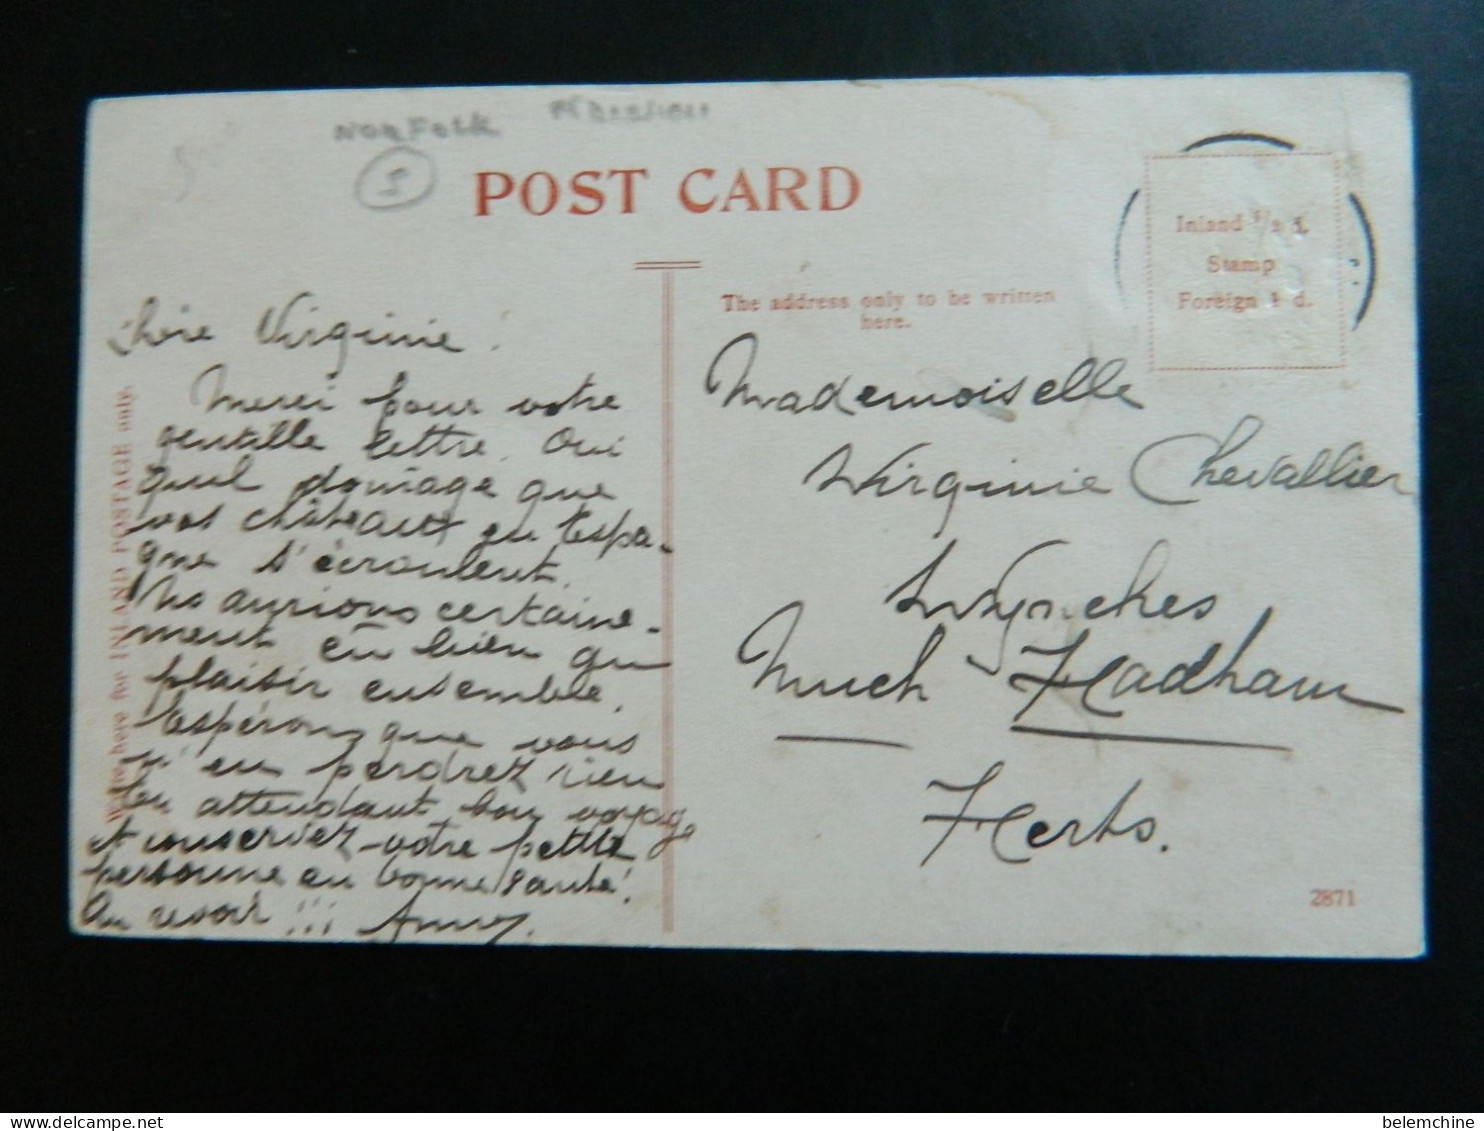 NORFOLK
5
POST CARD
Inland 1/2 d.
Stamp
Foreign 1 d.
The address only to be written
here.
Write here for INLAND POSTAGE only.
Chère Virginie!
Merci pour votre
gentille lettre. Oui
quel domage que
vos châteaux en Espa-
gne s'écroulent.
Ns aurions certaine-
ment eu bien du
plaisir ensemble.
Espérons que vous
n'en perdrez rien
En attendant bon voyage
et conservez votre petite
personne en bonne santé!
Au revoir !!! Anny.
Mademoiselle
Virginie Chevallier
Wynches
Much Hadham
Herts.
2871
belemchine